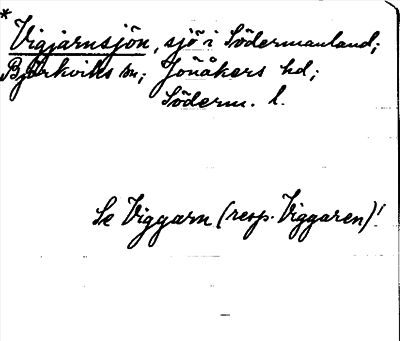 * Vigjarnsjön, sjö i Södermanland;
Björkviks sn; Jönåkers hd;
Söderm. l.
Se Viggarn (resp. Viggaren)!